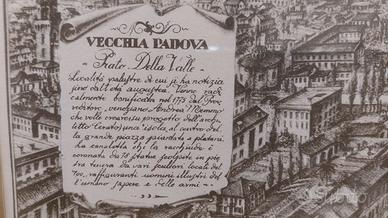 VECCHIA PADOVA
Prato Della Valle
Località palustre di cui si ha notizia
sino dall'età augustea. Venne radi
calmente bonificata nel 1775 dal Prov
veditore veneziano Andrea Memmo
che volle crearvi su progetto dell'archi
tetto Cerato) una isola, al centro del
la grande piazza quindi a platani.
ha canaletta che la racchiude è
coronata da 78 statue scolpite in pie
tra tenera da vari scultori locali del
'700, raffiguranti uomini illustri del
l'umano sapere e delle armi